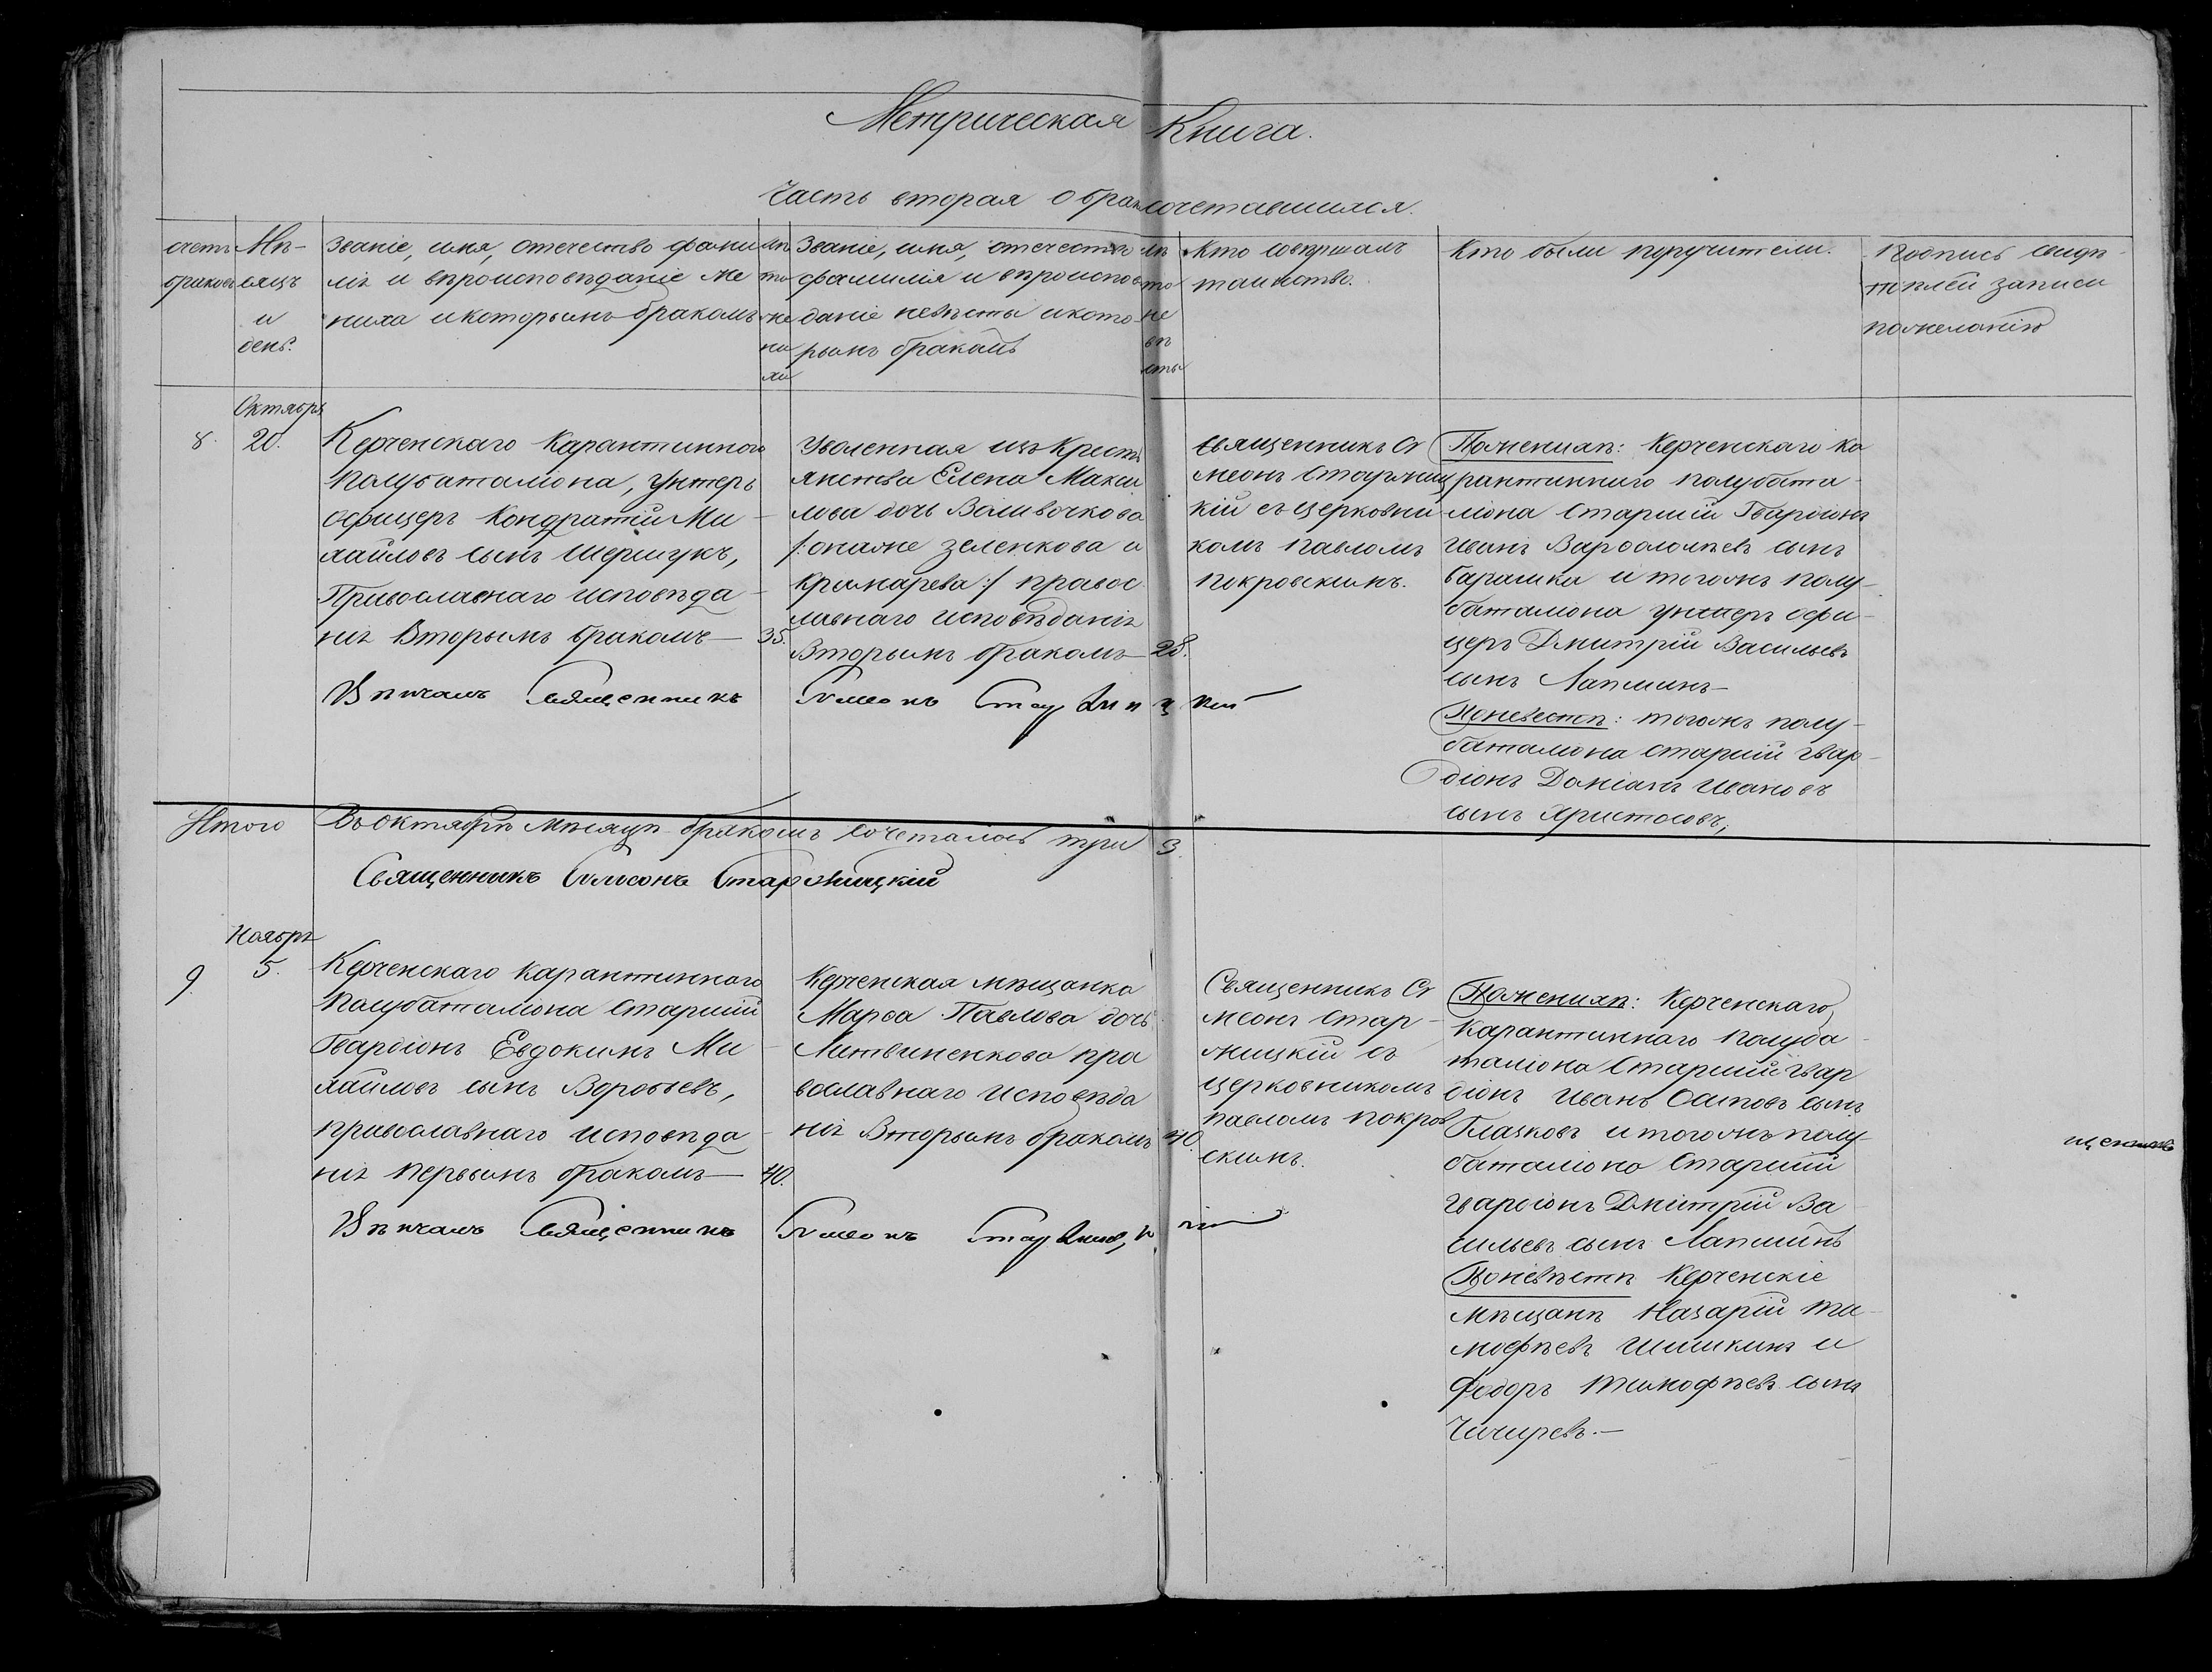 Метрическая Книга.
Часть вторая о бракосочетавшихся.
счетъ
браковъ
Мѣ-
сяцъ
и
день.
Званіе, имя, отечество фами
лія и вѣроисповѣданіе же
ниха и которымъ бракомъ
лѣ
та
же
ни
ха
Званіе, имя, отечество
фамилія и вѣроиспов
даніе невѣсты и кото-
рымъ бракомъ
лѣ
та
не
вѣ
сты
Кто совершалъ
таинство.
Кто были поручители.
Подпись свидѣ-
телей записи
пожеланію
Октября
8.
20.
Керченскаго Карантиннаго
Полубаталіона, унтеръ
офицеръ Кондратій Ми-
хайловъ сынъ Шершукъ,
Православнаго исповѣда-
нія Вторымъ бракомъ — 35.
Уволенная изъ Крестъ
янства Елена Макси
мова дочь Воливочкова
/:онаже Зеленкова и
Кримарева:/ правос
лавнаго исповѣданія
Вторымъ бракомъ — 28.
Священникъ Си
меонъ Старжиц
кій съ церковни
комъ Павломъ
Покровскимъ.
Пожениху: Керченскаго Ка
рантиннаго полубата-
ліона Старшій Гвардіонъ
Иванъ Варфоломѣевъ сынъ
Барашка и тогожъ полу-
баталіона унтеръ офи-
церъ Дмитрій Васильевъ
сынъ Лапшинъ—
Поневестѣ: тогожъ полу-
баталіона старшій гвар-
діонъ Даніилъ Ивановъ
сынъ Христосовъ;
Вѣнчалъ Священникъ Сѵмеонъ Старжицкій
Итого Въ октябрѣ мѣсяцѣ бракомъ сочеталось три 3.
Священникъ Сѵмеонъ Старжицкій
Ноября
9.
5.
Керченскаго Карантиннаго
Полубаталіона Старшій
Гвардіонъ Евдокимъ Ми-
хайловъ сынъ Воробьевъ,
православнаго исповѣда-
нія первымъ бракомъ — 40.
Керченская мѣщанка
Марѳа Павлова дочь
Литвиненкова пра
вославнаго исповѣда
нія Вторымъ бракомъ 40.
Священникъ Си
меонъ Стар-
жицкій съ
церковникомъ
Павломъ Покров
скимъ.
Пожениху: Керченскаго
Карантиннаго Полуба-
таліона Старшій гвар
діонъ Иванъ Осиповъ сынъ
Глазковъ и тогожъ полу-
баталіона Старшій
гвардіонъ Дмитрій Ва
сильевъ сынъ Лапшинъ
Поневѣстѣ Керченскіе
мѣщанѣ Назарій Ти-
мофѣевъ Шишкинъ и
Федоръ Тимофѣевъ сынъ
Чичиревъ.—
Вѣнчалъ Священникъ Сѵмеонъ Старжицкій